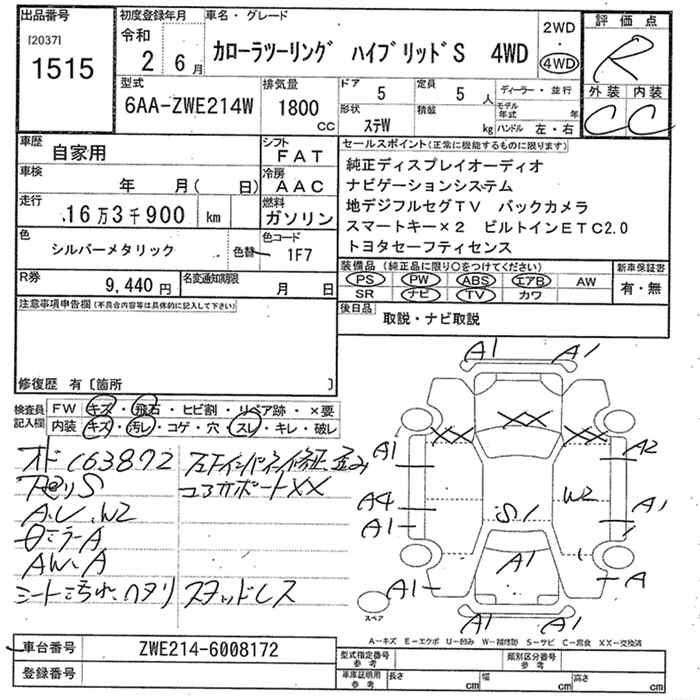 出品番号
[2037]
1515
初度登録年月
令和
2 6月
車名・グレード
カローラツーリング ハイブリッドS 4WD
2WD
4WD
評価点
R
外装 内装
C C
型式
6AA-ZWE214W
排気量
1800
cc
ドア 5
形状 ステW
定員 5 人
積載 kg
ディーラー・並行
モデル年式 年
ハンドル 左・右
車歴
自家用
シフト
FAT
車検
年 月( 日)
冷房
AAC
走行
16万3千900 km
燃料
ガソリン
色
シルバーメタリック
色替
色コード
1F7
R券
9,440円
名変通知期限
月 日
セールスポイント(正常に機能するものに限ります)
純正ディスプレイオーディオ
ナビゲーションシステム
地デジフルセグTV バックカメラ
スマートキー×2 ビルトインETC2.0
トヨタセーフティセンス
装備品(純正品に限り○をつけてください)
PS PW ABS エアB AW
SR ナビ TV カワ
新車保証書
有・無
後日品
取説・ナビ取説
注意事項申告欄(不具合内容等は具体的に記入して下さい)
修復歴 有〔箇所 〕
検査員記入欄
FW キズ・飛石・ヒビ割・リペア跡・×要
内装 キズ・汚レ・コゲ・穴・スレ・キレ・破レ
オド163872
フロアインパネ修正 歪み
コアサポートXX
A.U.W2
ミラーA
AW.A
シート汚れ、ヘタリ
スタッドレス
A1 A1
XX XX XX
A1 A2
A4 S1 W2 A1
A1
A1 A1 A
A1 A1
スペア
A-キズ E-エクボ U-凹み W-補修跡 S-サビ C-腐食 XX-交換済
車台番号
ZWE214-6008172
登録番号
型式指定番号
参考
類別区分番号
参考
車庫証明用
参考
長さ cm
幅 cm
高さ cm